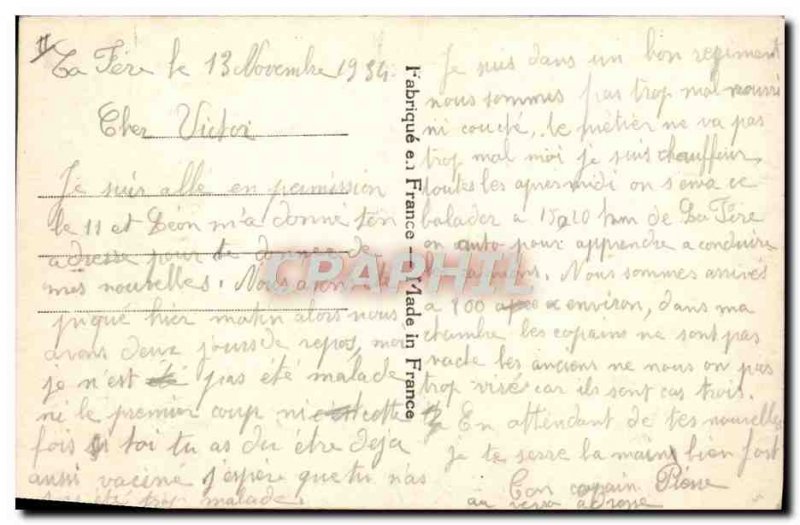 La Fère le 13 Novembre 1934
Cher Victor
Je suis allé en permission
le 11 et Léon m'a donné ton
adresse pour te donner de
mes nouvelles. Nous avons été
piqué hier matin alors nous
avons deux jours de repos, moi
je n'est pas été malade
ni le premier coup ni cette
fois si toi tu as du être deja
aussi vaciné j'espère que tu n'as
pas été trop malade.
Je suis dans un bon regiment
nous sommes pas trop mal nourri
ni couché, le métier ne va pas
trop mal moi je suis chauffeur,
toutes les apres midi on s'en va ce
balader a 15 a 20 km de La Fère
en auto pour apprendre a conduire
camions. Nous sommes arrivés
a 800 a environ, dans ma
chambre les copains ne sont pas
vache les anciens ne nous on pas
trop visé car ils sont cas trois.
En attendant de tes nouvelles
je te serre la main bien fort
Ton copain Pierre
au verso adresse
Fabriqué en France - Made in France
CPRAPHIL